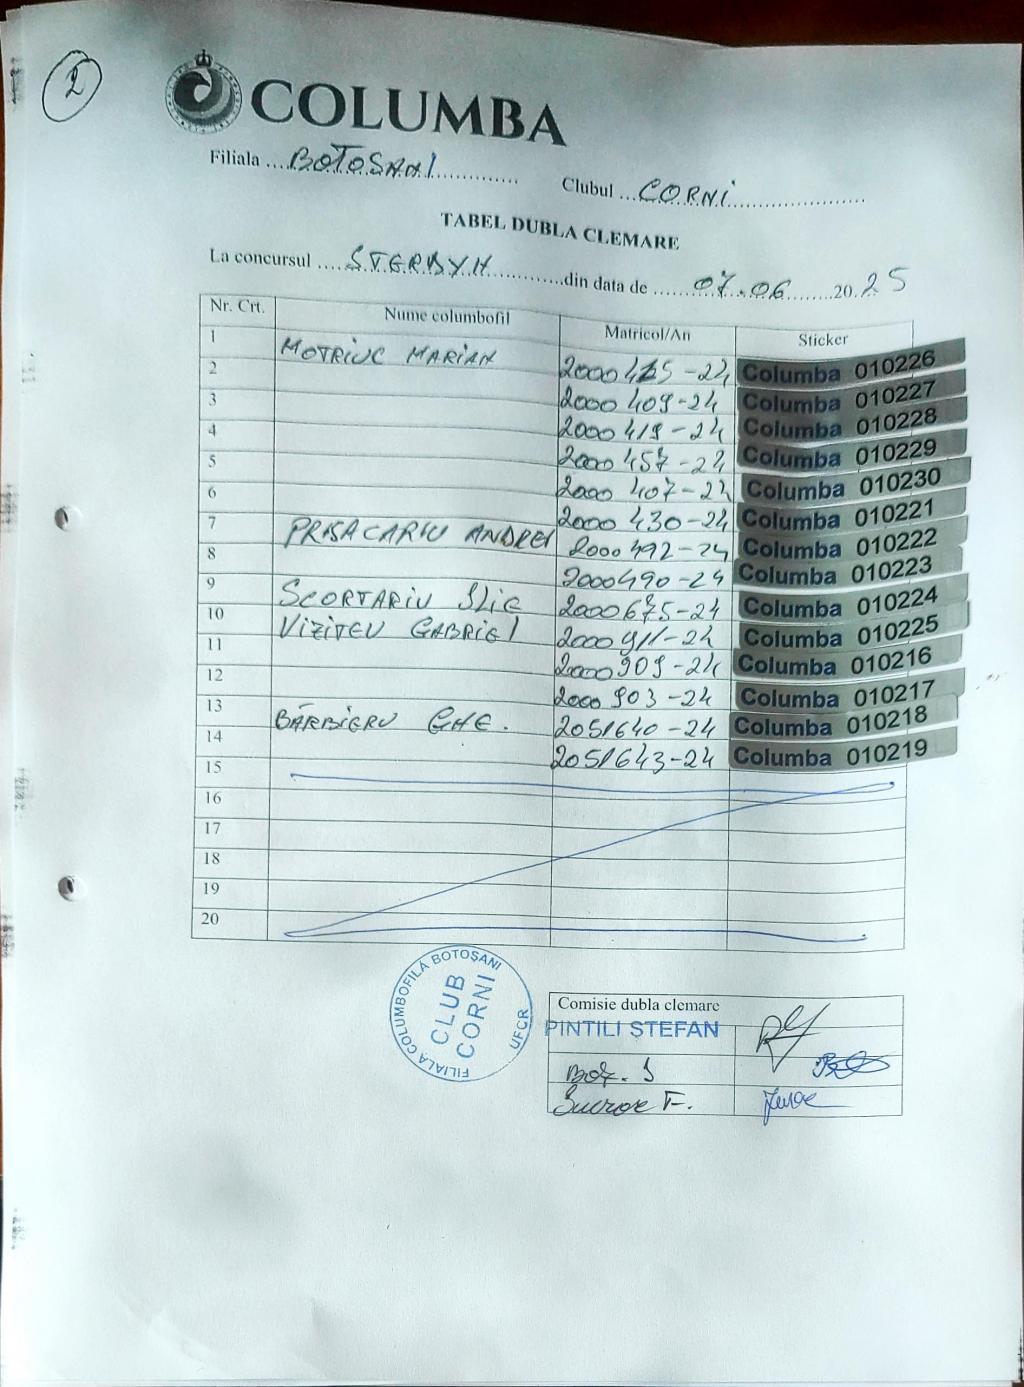 2
COLUMBA
Filiala ....BOTOSANI............... Clubul ...CORNI.......................
TABEL DUBLA CLEMARE
La concursul ....STERBYH..............din data de .......07.06........20.25
Nr. Crt. Nume columbofil Matricol/An Sticker
1 MOTRIUC MARIAN 2000 415-24 Columba 010226
2 2000 409-24 Columba 010227
3 2000 419-24 Columba 010228
4 2000 457-24 Columba 010229
5 2000 407-24 Columba 010230
6 2000 430-24 Columba 010221
7 PRISACARIU ANDREI 2000 492-24 Columba 010222
8 2000 490-24 Columba 010223
9 SCORTARIU ILIE 2000 675-24 Columba 010224
10 VIZITEU GABRIEL 2000 911-24 Columba 010225
11 2000 909-24 Columba 010216
12 2000 903-24 Columba 010217
13 BARBIERU GHE. 2051640-24 Columba 010218
14 2051643-24 Columba 010219
15
16
17
18
19
20
FILIALA COLUMBOFILĂ BOTOȘANI
CLUB
CORNI
UFCR
Comisie dubla clemare
PINTILI ȘTEFAN